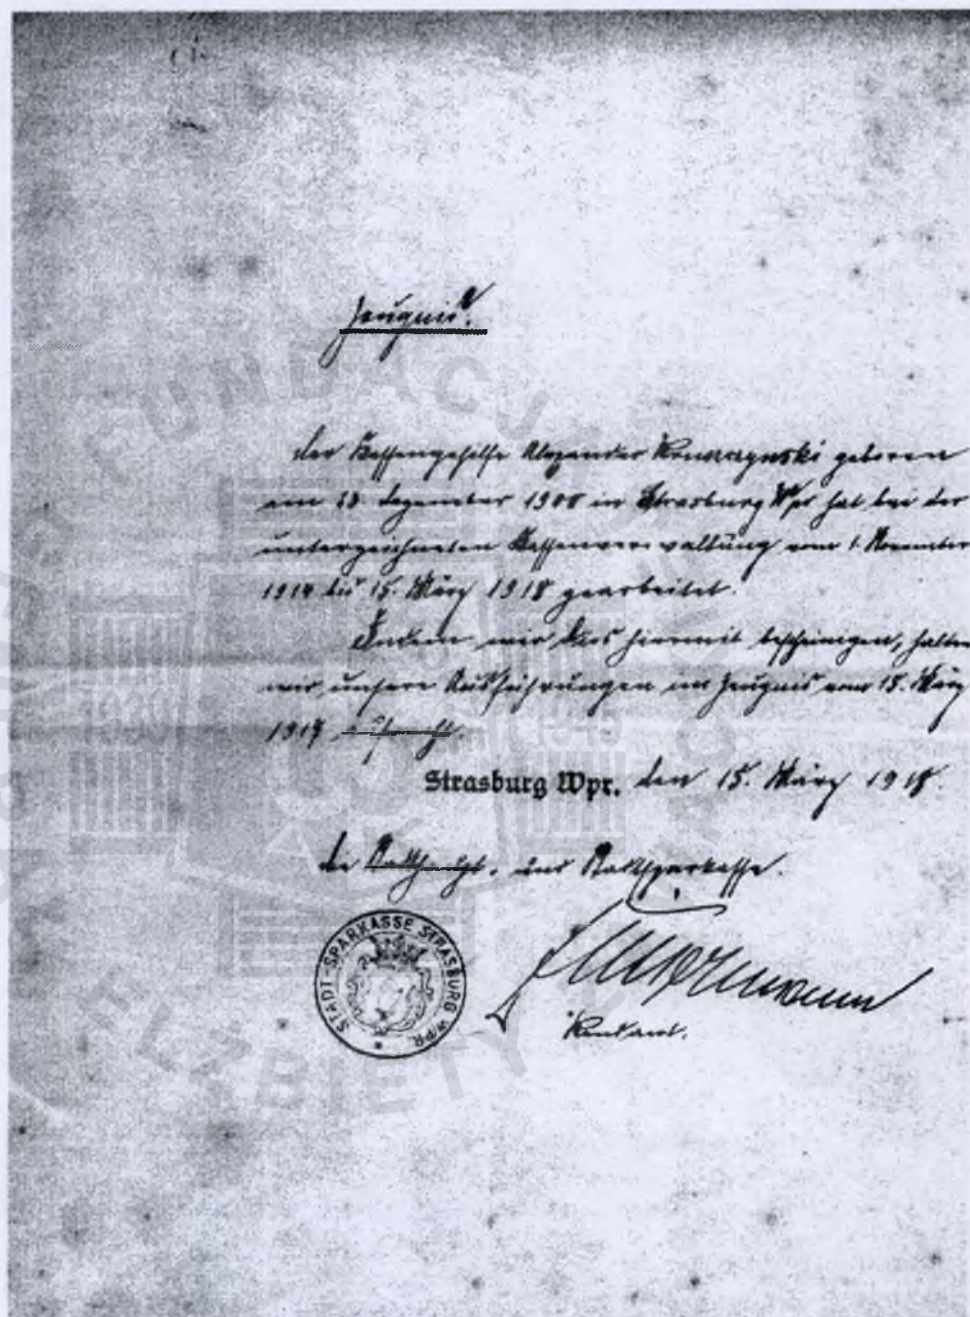 Zeugnis.
Der Kassengehilfe Alexander geboren
am Dezember 1900 in Strasburg Wpr hat bei der
unterzeichneten Kassenverwaltung vom 1. November
1914 bis 15. März 1918 gearbeitet.
Indem wir dies hiermit bescheinigen, halten
wir unsere Ausführungen im Zeugnis vom 15. März
1917 aufrecht.
Strasburg Wpr. den 15. März 1918.
Die Stadthaupt- und Stadtsparkasse.
STADT-SPARKASSE STRASBURG WPR.
Rendant.
FUNDACJA
ELŻBIETY
1945